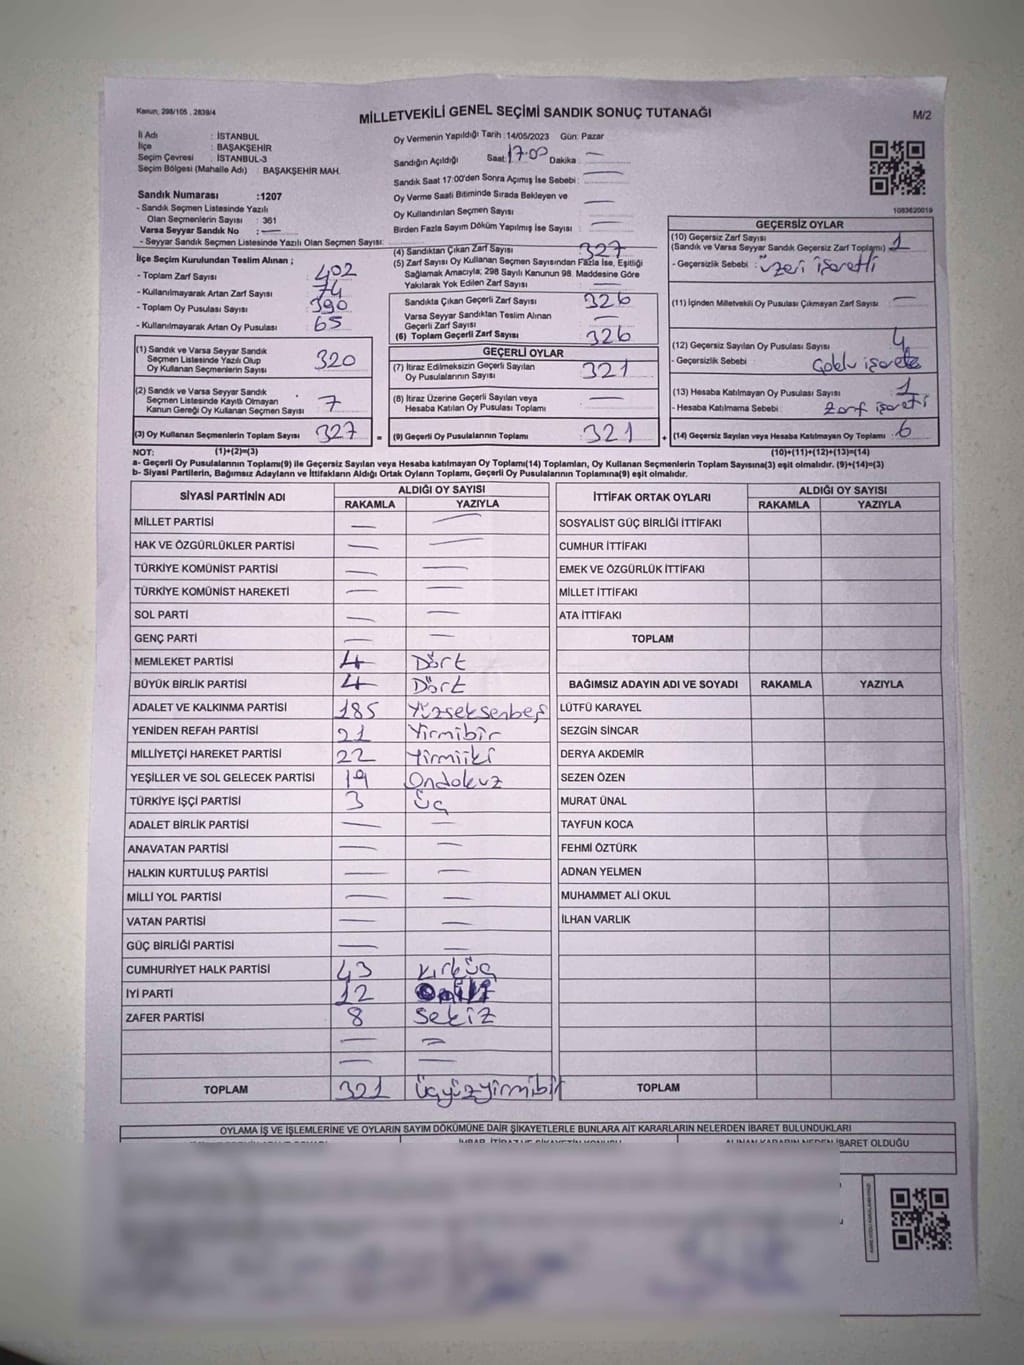 Kanun, 298/105 , 2839/4
MİLLETVEKİLİ GENEL SEÇİMİ SANDIK SONUÇ TUTANAĞI
M/2
İl Adı : İSTANBUL
İlçe : BAŞAKŞEHİR
Seçim Çevresi : İSTANBUL-3
Seçim Bölgesi (Mahalle Adı) : BAŞAKŞEHİR MAH.
Oy Vermenin Yapıldığı Tarih : 14/05/2023 Gün: Pazar
Sandığın Açıldığı Saat 17.00 Dakika : —
Sandık Saat 17:00'den Sonra Açımış İse Sebebi : —
Oy Verme Saati Bitiminde Sırada Bekleyen ve
Oy Kullandırılan Seçmen Sayısı : —
Birden Fazla Sayım Döküm Yapılmış İse Sayısı : —
1083620019
Sandık Numarası :1207
- Sandık Seçmen Listesinde Yazılı
Olan Seçmenlerin Sayısı : 361
Varsa Seyyar Sandık No : —
- Seyyar Sandık Seçmen Listesinde Yazılı Olan Seçmen Sayısı:
İlçe Seçim Kurulundan Teslim Alınan ;
- Toplam Zarf Sayısı : 402
- Kullanılmayarak Artan Zarf Sayısı : 74
- Toplam Oy Pusulası Sayısı : 390
- Kullanılmayarak Artan Oy Pusulası : 65
(1) Sandık ve Varsa Seyyar Sandık
Seçmen Listesinde Yazılı Olup
Oy Kullanan Seçmenlerin Sayısı : 320
(2) Sandık ve Varsa Seyyar Sandık
Seçmen Listesinde Kayıtlı Olmayan
Kanun Gereği Oy Kullanan Seçmen Sayısı : 7
(3) Oy Kullanan Seçmenlerin Toplam Sayısı : 327
(4) Sandıktan Çıkan Zarf Sayısı : 327
(5) Zarf Sayısı Oy Kullanan Seçmen Sayısından Fazla İse, Eşitliği
Sağlamak Amacıyla; 298 Sayılı Kanunun 98. Maddesine Göre
Yakılarak Yok Edilen Zarf Sayısı : —
Sandıkta Çıkan Geçerli Zarf Sayısı : 326
Varsa Seyyar Sandıktan Teslim Alınan
Geçerli Zarf Sayısı : —
(6) Toplam Geçerli Zarf Sayısı : 326
GEÇERLİ OYLAR
(7) İtiraz Edilmeksizin Geçerli Sayılan
Oy Pusulalarının Sayısı : 321
(8) İtiraz Üzerine Geçerli Sayılan veya
Hesaba Katılan Oy Pusulası Toplamı : —
= (9) Geçerli Oy Pusulalarının Toplamı : 321
GEÇERSİZ OYLAR
(10) Geçersiz Zarf Sayısı
(Sandık ve Varsa Seyyar Sandık Geçersiz Zarf Toplamı) : 1
- Geçersizlik Sebebi : üzeri işaretli
(11) İçinden Milletvekili Oy Pusulası Çıkmayan Zarf Sayısı : —
(12) Geçersiz Sayılan Oy Pusulası Sayısı : 4
- Geçersizlik Sebebi : Çoklu işaret
(13) Hesaba Katılmayan Oy Pusulası Sayısı : 1
- Hesaba Katılmama Sebebi : zarf işareti
+ (14) Geçersiz Sayılan veya Hesaba Katılmayan Oy Toplamı : 6
NOT: (1)+(2)=(3) (10)+(11)+(12)+(13)=(14)
a- Geçerli Oy Pusulalarının Toplamı(9) ile Geçersiz Sayılan veya Hesaba katılmayan Oy Toplamı(14) Toplamları, Oy Kullanan Seçmenlerin Toplam Sayısına(3) eşit olmalıdır. (9)+(14)=(3)
b- Siyasi Partilerin, Bağımsız Adayların ve İttifakların Aldığı Oy Ortak Oyların Toplamı, Geçerli Oy Pusulalarının Toplamına(9) eşit olmalıdır.
SİYASİ PARTİNİN ADI ALDIĞI OY SAYISI
RAKAMLA YAZIYLA
MİLLET PARTİSİ — —
HAK VE ÖZGÜRLÜKLER PARTİSİ — —
TÜRKİYE KOMÜNİST PARTİSİ — —
TÜRKİYE KOMÜNİST HAREKETİ — —
SOL PARTİ — —
GENÇ PARTİ — —
MEMLEKET PARTİSİ 4 Dört
BÜYÜK BİRLİK PARTİSİ 4 Dört
ADALET VE KALKINMA PARTİSİ 185 Yüzseksenbeş
YENİDEN REFAH PARTİSİ 21 Yirmibir
MİLLİYETÇİ HAREKET PARTİSİ 22 Yirmiiki
YEŞİLLER VE SOL GELECEK PARTİSİ 19 Ondokuz
TÜRKİYE İŞÇİ PARTİSİ 3 Üç
ADALET BİRLİK PARTİSİ — —
ANAVATAN PARTİSİ — —
HALKIN KURTULUŞ PARTİSİ — —
MİLLİ YOL PARTİSİ — —
VATAN PARTİSİ — —
GÜÇ BİRLİĞİ PARTİSİ — —
CUMHURİYET HALK PARTİSİ 43 Kırküç
İYİ PARTİ 12
ZAFER PARTİSİ 8 Sekiz
— —
— —
TOPLAM 321 Üçyüzyirmibir
İTTİFAK ORTAK OYLARI ALDIĞI OY SAYISI
RAKAMLA YAZIYLA
SOSYALIST GÜÇ BİRLİĞİ İTTİFAKI
CUMHUR İTTİFAKI
EMEK VE ÖZGÜRLÜK İTTİFAKI
MİLLET İTTİFAKI
ATA İTTİFAKI
TOPLAM
BAĞIMSIZ ADAYIN ADI VE SOYADI RAKAMLA YAZIYLA
LÜTFÜ KARAYEL
SEZGİN SİNCAR
DERYA AKDEMİR
SEZEN ÖZEN
MURAT ÜNAL
TAYFUN KOCA
FEHMİ ÖZTÜRK
ADNAN YELMEN
MUHAMMET ALİ OKUL
İLHAN VARLIK
TOPLAM
OYLAMA İŞ VE İŞLEMLERİNE VE OYLARIN SAYIM DÖKÜMÜNE DAİR ŞİKAYETLERLE BUNLARA AİT KARARLARIN NELERDEN İBARET BULUNDUKLARI
İHBAR, İTİRAZ VE ŞİKAYETİN KONUSU
ALINAN KARARIN NEDEN İBARET OLDUĞU